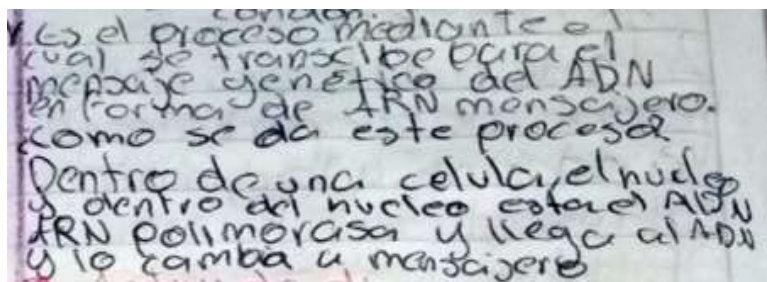 Es el proceso mediante el
cual se transcibe para el
mensaje genético del ADN
en forma de ARN mensajero.
como se da este proceso?
Dentro de una celula, el nucleo
y dentro del nucleo esta el ADN
ARN polimorasa y llega al ADN
y lo camba a mensajero